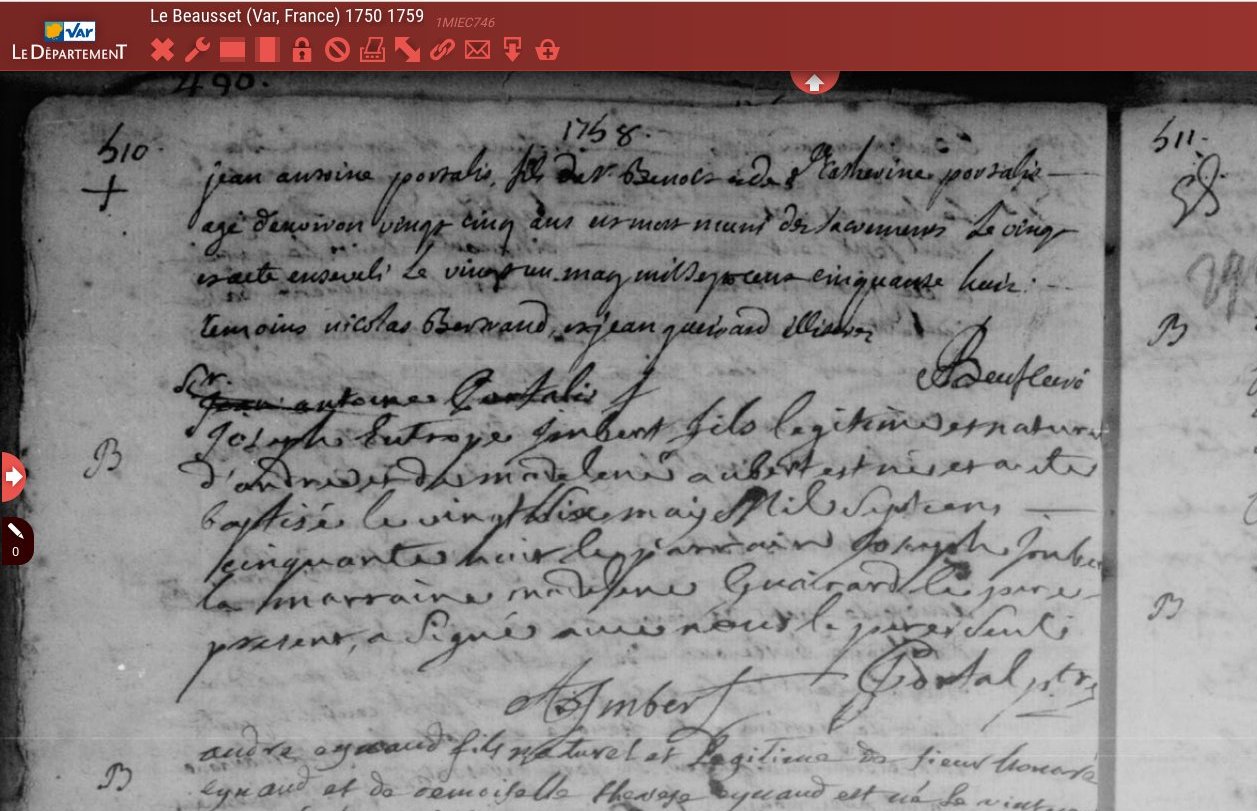 Le Beausset (Var, France) 1750 1759
1MIEC746
VAR
LE DÉPARTEMENT
490.
1758.
510.
511.
jean antoine portalis, fils de Sr Benoit et de Catherine portalis
agé d'environ vingt cinq ans est mort muni des sacrements le vingt
et a eté enseveli le vingt un may mil sept cens cinquante huit.
temoins nicolas Bernard, et jean gueirard illiteres
Sr.
jean antoine Portalis
B
Joseph Eutrope Jmbert fils legitime et naturel
d'andre et de madelene aubert est né et a ete
baptisé le vingt six may Mil Sept cens
cinquante huit le parrain Joseph Jmber
la marraine madelene Guairard le pere
present, a Signé avec nous le pere Senti
Portal ptre
A Jmbert
B
andre eynaud fils naturel et Legitime de sieur honoré
eynaud et de demoiselle therese eynaud est né le vint
B
B
0